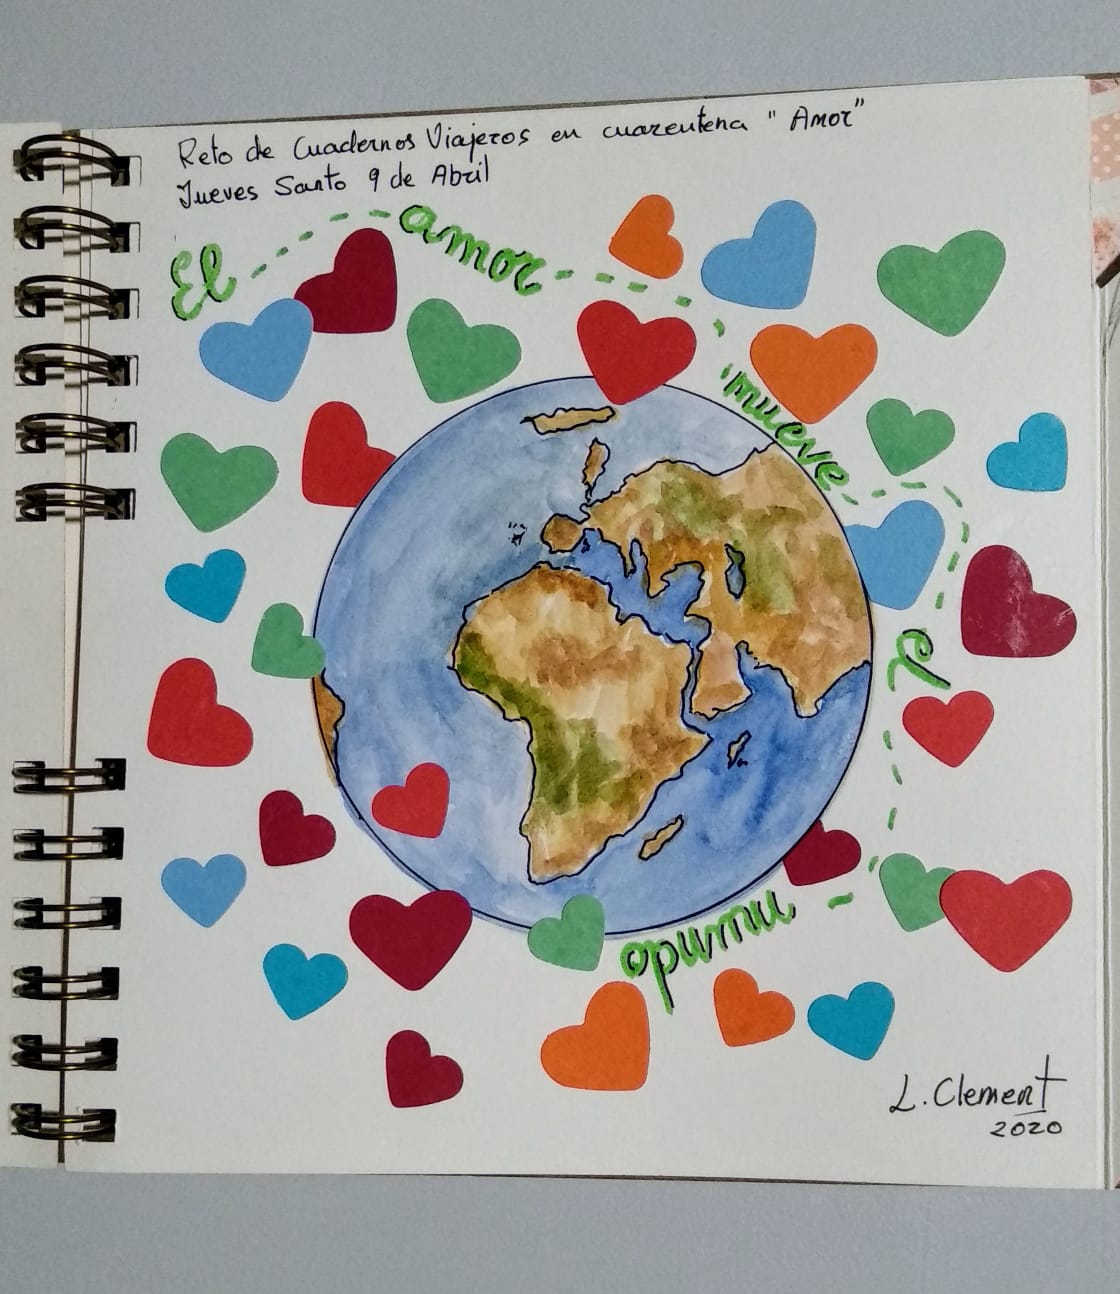 Reto de Cuadernos Viajeros en cuarentena "Amor"
Jueves Santo 9 de Abril
El amor mueve el mundo
L. Clement
2020